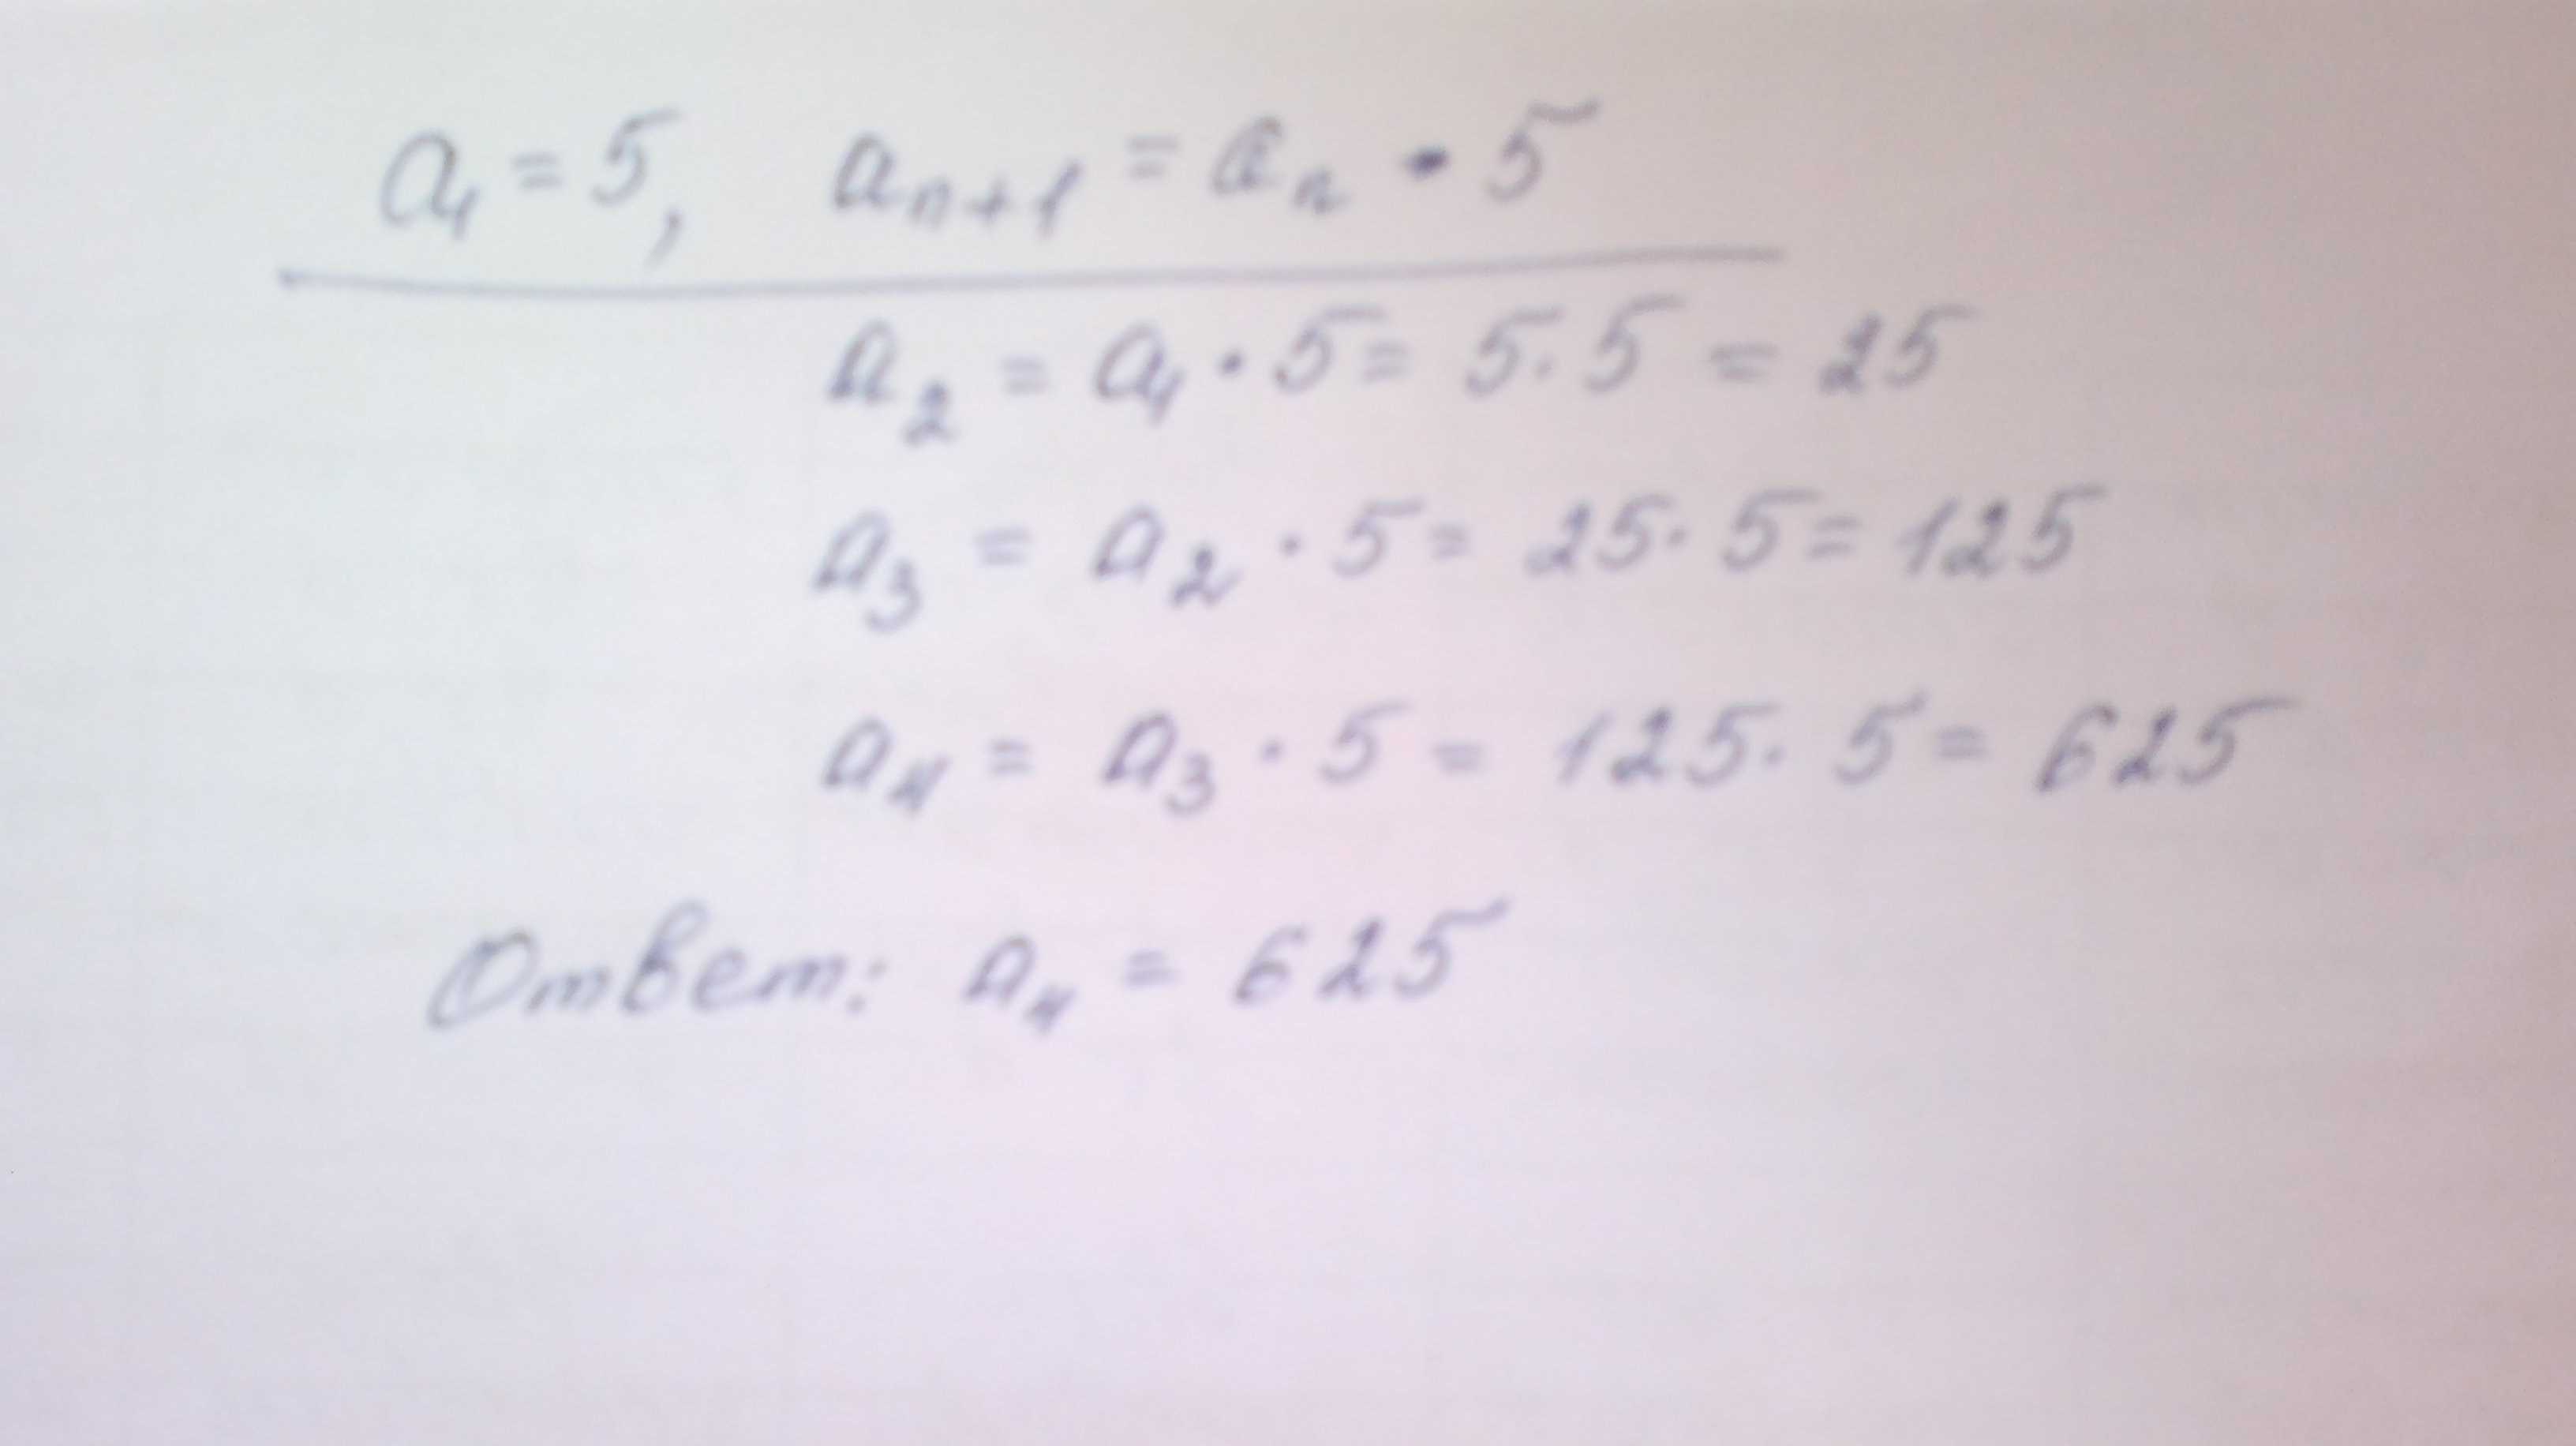 a₁ = 5, aₙ₊₁ = aₙ · 5
a₂ = a₁ · 5 = 5 · 5 = 25
a₃ = a₂ · 5 = 25 · 5 = 125
a₄ = a₃ · 5 = 125 · 5 = 625
Ответ: a₄ = 625